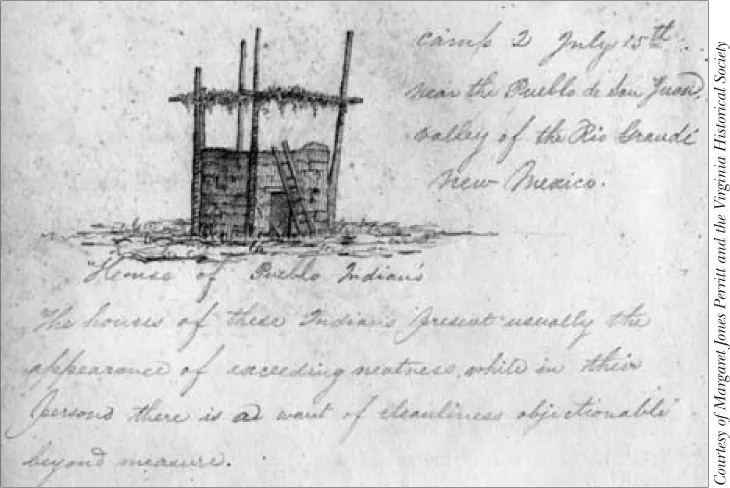 Camp 2 July 15th.
near the Pueblo de San Juan,
valley of the Rio Grande
New Mexico.
"House of Pueblo Indian's
The houses of these Indians present usually the
appearance of exceeding neatness, while in their
persons there is a want of cleanliness objectionable
beyond measure.
Courtesy of Margaret Jones Perritt and the Virginia Historical Society